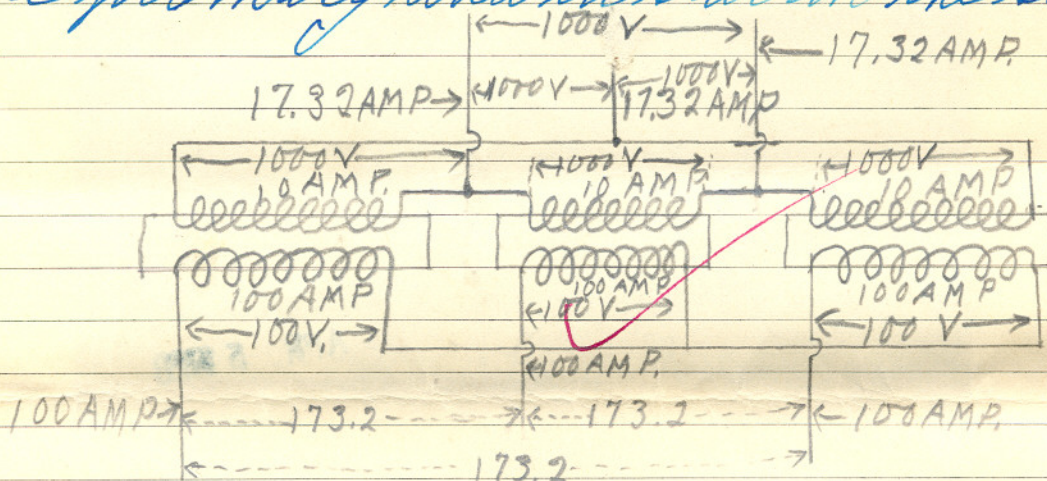 1000 V
17.32 AMP.
1000V 1000V
17.32 AMP 17.32 AMP
1000V 1000V 1000V
10 AMP. 10 AMP 10 AMP
100 AMP 100 AMP 100 AMP
100V. 100V 100 V
100 AMP.
100 AMP. 173.2 173.2 100 AMP.
173.2